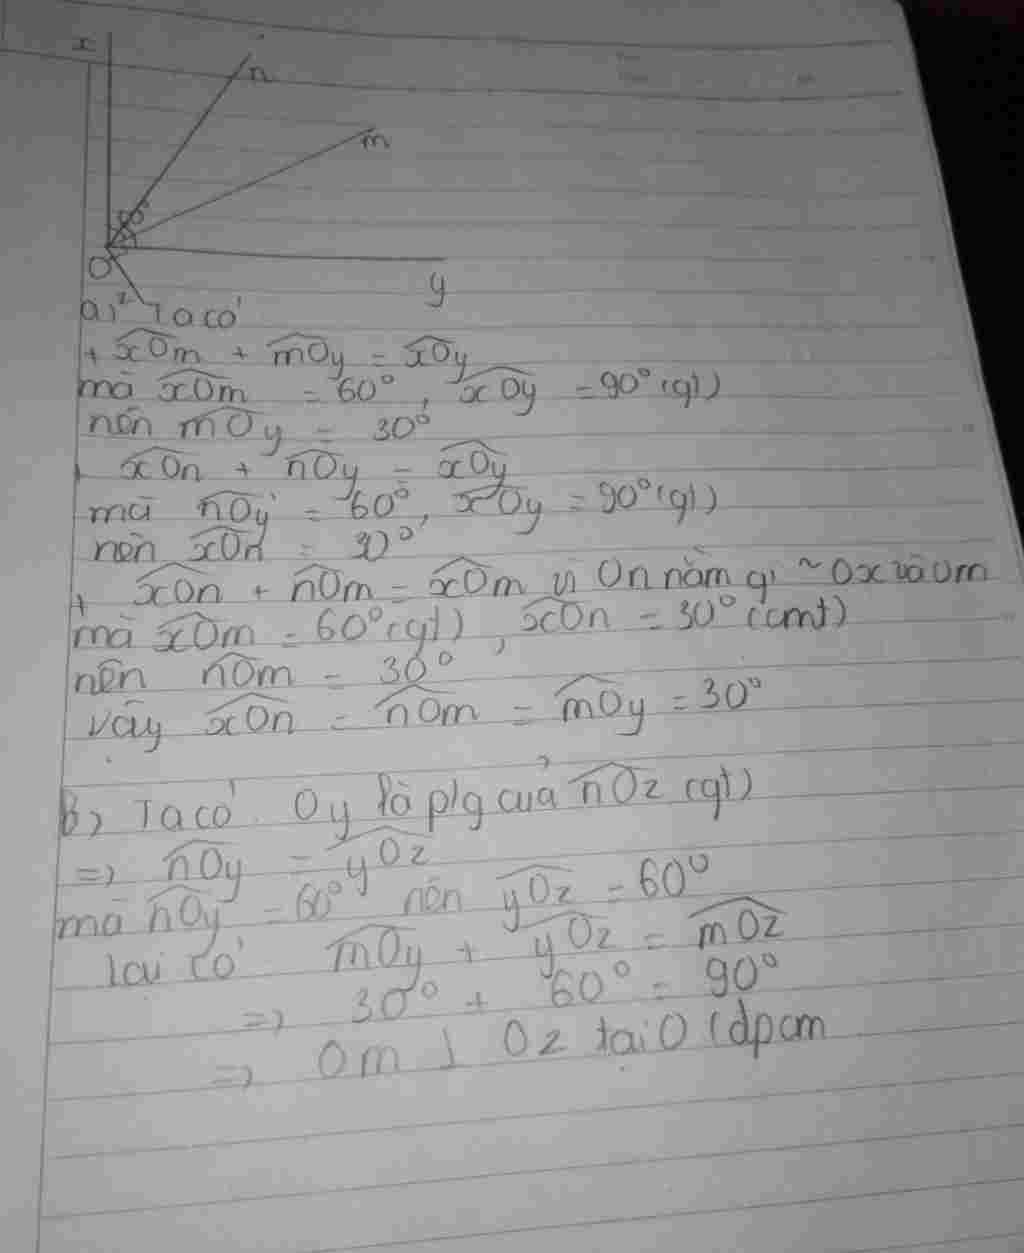 x
n
m
60°
O
y
z
a) Ta có
+ xOm + mOy = xOy
mà xOm = 60°, xOy = 90° (gt)
nên mOy = 30°
+ xOn + nOy = xOy
mà nOy = 60°, xOy = 90° (gt)
nên xOn = 30°
+ xOn + nOm = xOm vì On nằm gi ~ Ox và Om
mà xOm = 60° (gt), xOn = 30° (cmt)
nên nOm = 30°
vậy xOn = nOm = mOy = 30°
b) Ta có Oy là p/g của nOz (gt)
=> nOy = yOz
mà nOy = 60° nên yOz = 60°
lại có mOy + yOz = mOz
=> 30° + 60° = 90°
=> Om ⊥ Oz tại O (dpcm